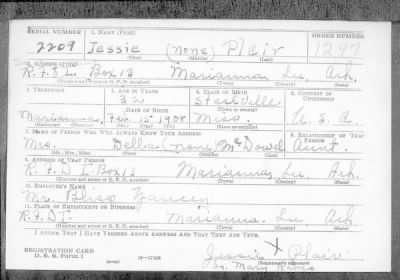 SERIAL NUMBER 1. NAME (Print) ORDER NUMBER
2209 Jessie (none) Plair 1297
(First) (Middle) (Last)
2. ADDRESS (Print)
R.F.D 1. Box 13 Marianna, Lee Ark.
(Number and street or R. F. D. number) (Town) (County) (State)
3. TELEPHONE 4. AGE IN YEARS 5. PLACE OF BIRTH 6. COUNTRY OF CITIZENSHIP
32 Starkville
DATE OF BIRTH (Town or county)
Marianna, Feb. 15 1908 Miss. U. S. A.
(Exchange) (Number) (Mo.) (Day) (Yr.) (State or country)
7. NAME OF PERSON WHO WILL ALWAYS KNOW YOUR ADDRESS 8. RELATIONSHIP OF THAT PERSON
Mrs. Della (none) McDowel Aunt.
(Mr., Mrs., Miss) (First) (Middle) (Last)
9. ADDRESS OF THAT PERSON
R. F. D 1 Box 13 Marianna, Lee Ark.
(Number and street or R. F. D. number) (Town) (County) (State)
10. EMPLOYER'S NAME
Mr. Bliss Yancey
11. PLACE OF EMPLOYMENT OR BUSINESS
R.F.D 1. Marianna. Lee Ark
(Number and street or R. F. D. number) (Town) (County) (State)
I AFFIRM THAT I HAVE VERIFIED ABOVE ANSWERS AND THAT THEY ARE TRUE.
REGISTRATION CARD
D. S. S. Form 1 (over) 16—17105 Jessie X Plair
(Registrant's signature)
Mary